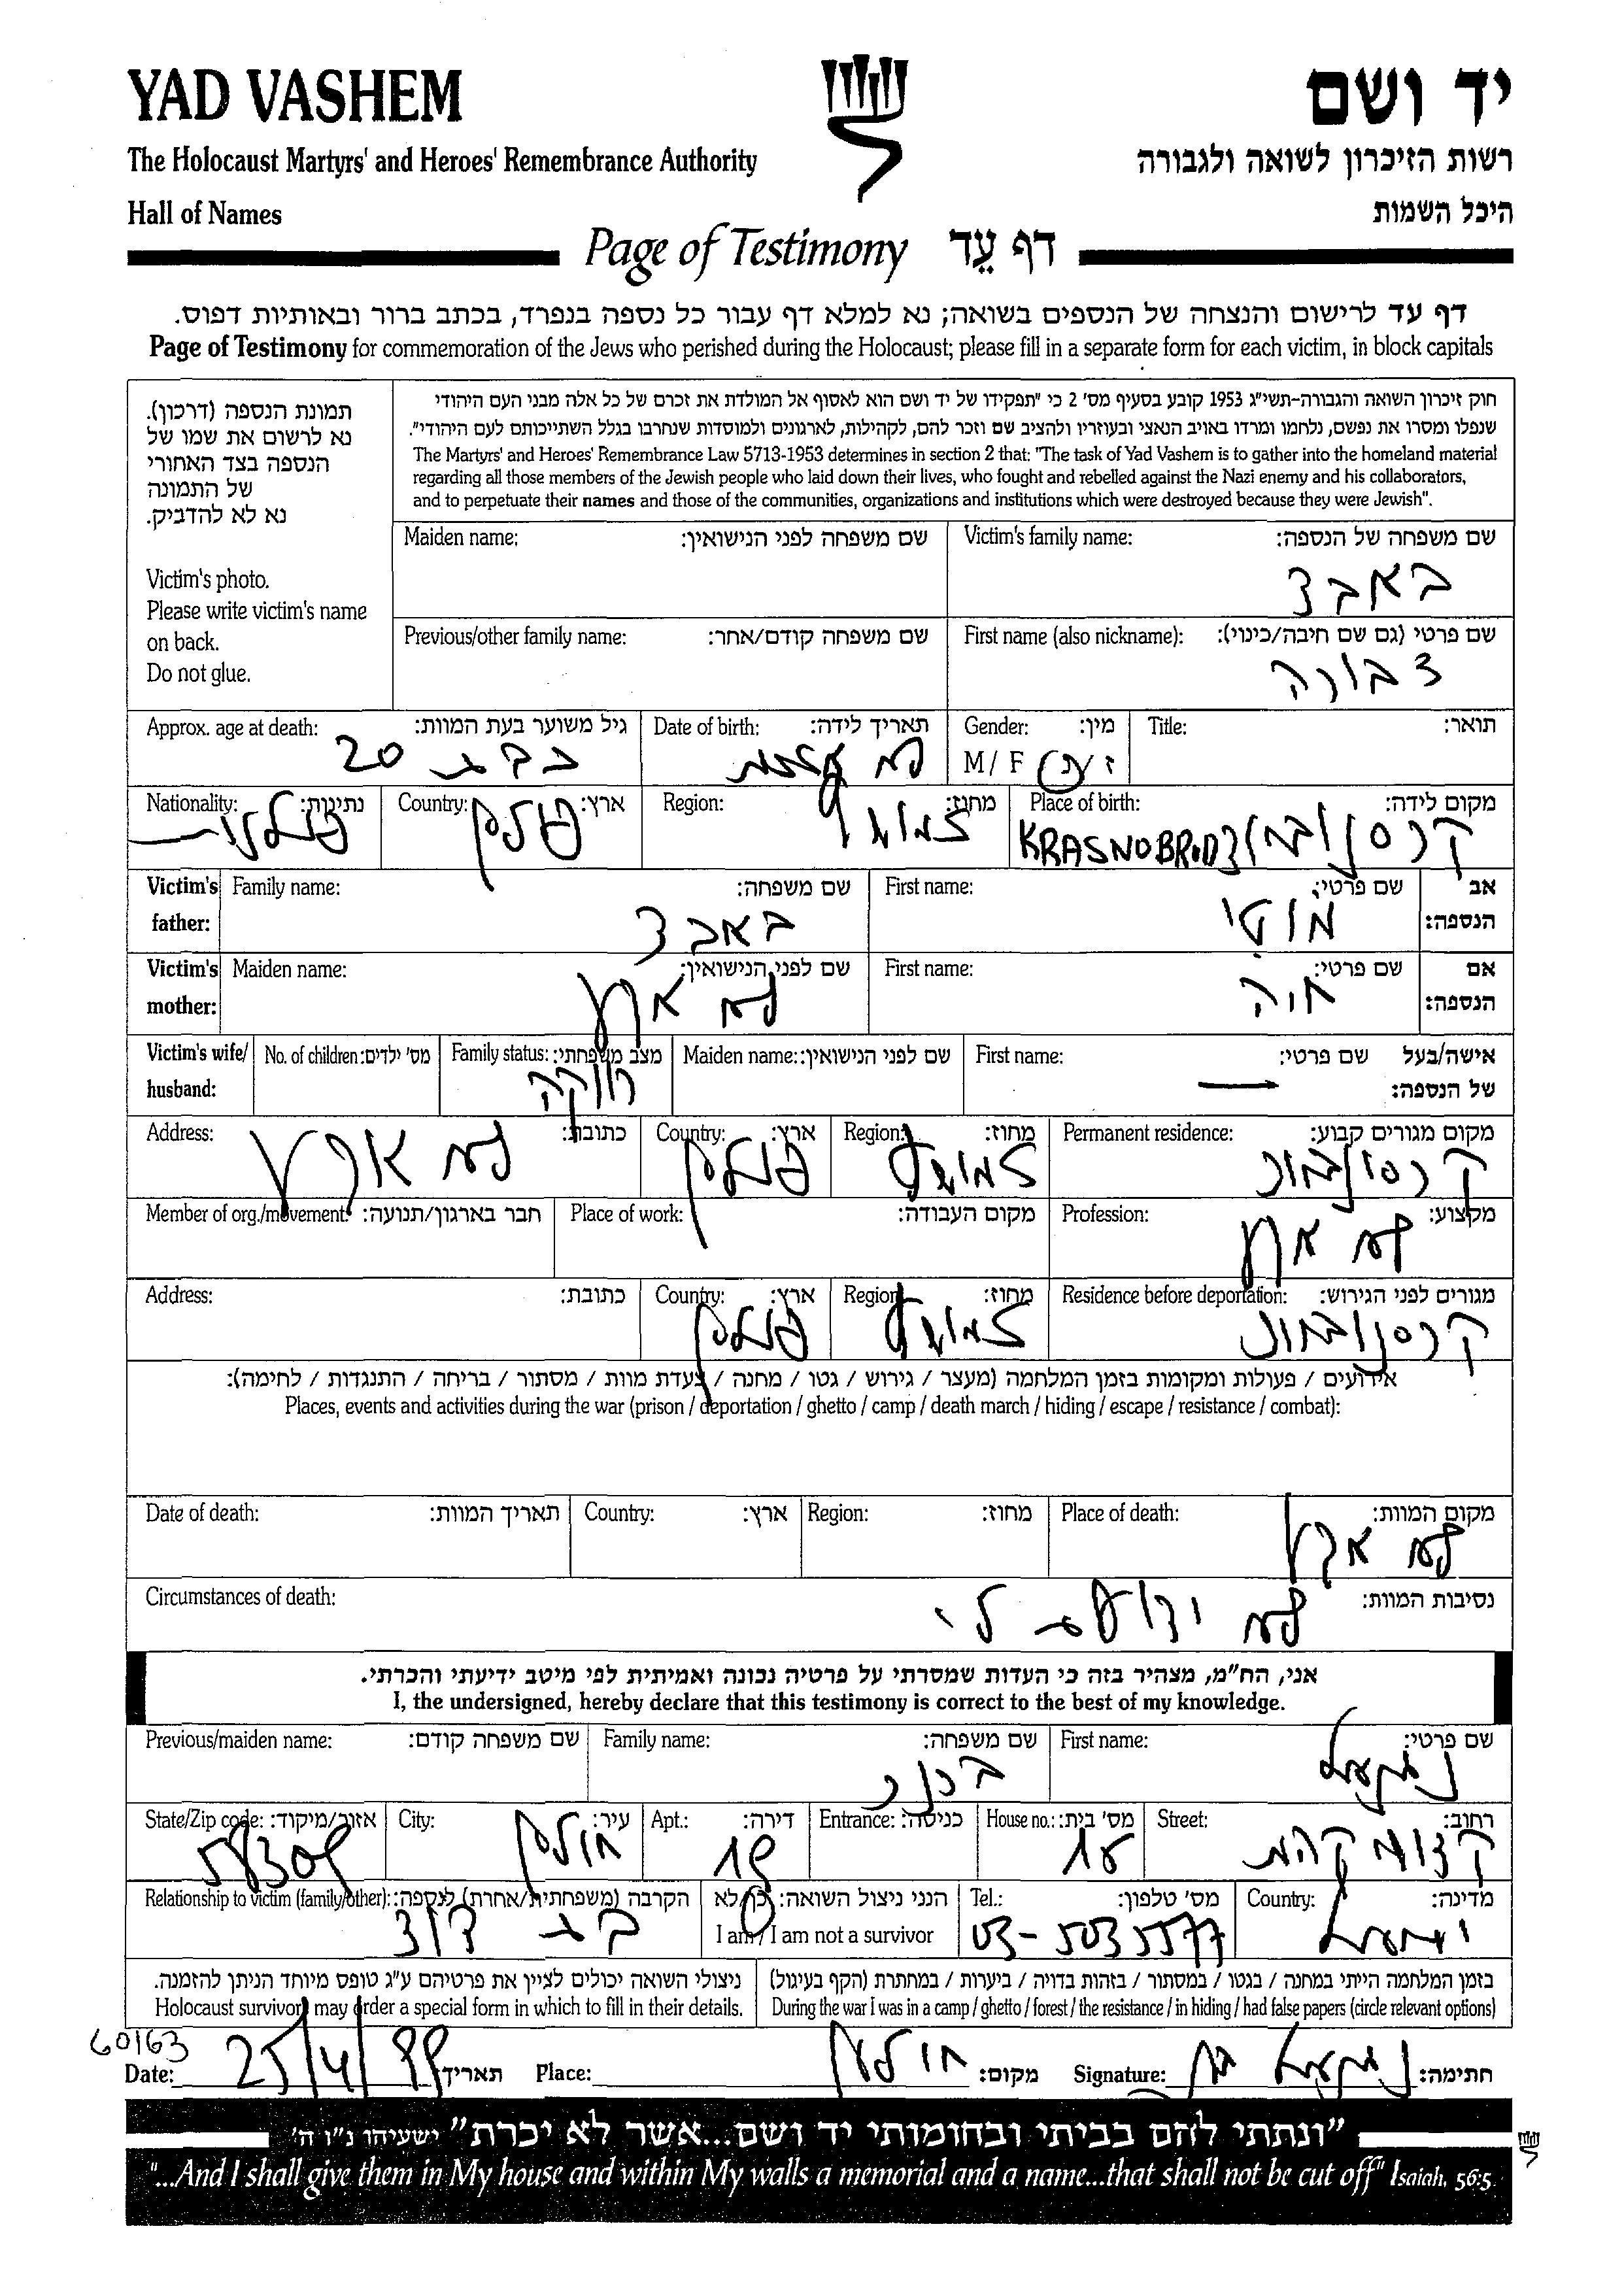 YAD VASHEM
יד ושם
The Holocaust Martyrs' and Heroes' Remembrance Authority
רשות הזיכרון לשואה ולגבורה
Hall of Names
היכל השמות
Page of Testimony דף עֵד
דף עד לרישום והנצחה של הנספים בשואה; נא למלא דף עבור כל נספה בנפרד, בכתב ברור ובאותיות דפוס.
Page of Testimony for commemoration of the Jews who perished during the Holocaust; please fill in a separate form for each victim, in block capitals
תמונת הנספה (דרכון).
נא לרשום את שמו של
הנספה בצד האחורי
של התמונה
נא לא להדביק.
Victim's photo.
Please write victim's name
on back.
Do not glue.
חוק זיכרון השואה והגבורה-תשי"ג 1953 קובע בסעיף מס' 2 כי "תפקידו של יד ושם הוא לאסוף אל המולדת את זכרם של כל אלה מבני העם היהודי
שנפלו ומסרו את נפשם, נלחמו ומרדו באויב הנאצי ובעוזריו ולהציב שם וזכר להם, לקהילות, לארגונים ולמוסדות שנחרבו בגלל השתייכותם לעם היהודי".
The Martyrs' and Heroes' Remembrance Law 5713-1953 determines in section 2 that: "The task of Yad Vashem is to gather into the homeland material
regarding all those members of the Jewish people who laid down their lives, who fought and rebelled against the Nazi enemy and his collaborators,
and to perpetuate their names and those of the communities, organizations and institutions which were destroyed because they were Jewish".
Maiden name: שם משפחה לפני הנישואין: Victim's family name: שם משפחה של הנספה:
באבד
Previous/other family name: שם משפחה קודם/אחר: First name (also nickname): שם פרטי (גם שם חיבה/כינוי):
דבורה
Approx. age at death: גיל משוער בעת המוות: Date of birth: תאריך לידה: Gender: מין: Title: תואר:
20 בת לא M / F ז / נ
Nationality: נתינות: Country: ארץ: Region: מחוז: Place of birth: מקום לידה:
פולני פולין זמושץ KRASNOBROD קרסנוברוד
Victim's father: Family name: שם משפחה: First name: שם פרטי: אב הנספה:
באבד מוטי
Victim's mother: Maiden name: שם לפני הנישואין: First name: שם פרטי: אם הנספה:
לא חוה
Victim's wife/ husband: No. of children: מס' ילדים: Family status: מצב משפחתי: Maiden name: שם לפני הנישואין: First name: שם פרטי: אישה/בעל של הנספה:
רווקה
Address: כתובת: Country: ארץ: Region: מחוז: Permanent residence: מקום מגורים קבוע:
לא פולין זמושץ קרסנוברוד
Member of org./movement: חבר בארגון/תנועה: Place of work: מקום העבודה: Profession: מקצוע:
לא
Address: כתובת: Country: ארץ: Region: מחוז: Residence before deportation: מגורים לפני הגירוש:
פולין זמושץ קרסנוברוד
אירועים / פעולות ומקומות בזמן המלחמה (מעצר / גירוש / גטו / מחנה / צעדת מוות / מסתור / בריחה / התנגדות / לחימה):
Places, events and activities during the war (prison / deportation / ghetto / camp / death march / hiding / escape / resistance / combat):
Date of death: תאריך המוות: Country: ארץ: Region: מחוז: Place of death: מקום המוות:
לא
Circumstances of death: נסיבות המוות:
לא ידוע לי
אני, הח"מ, מצהיר בזה כי העדות שמסרתי על פרטיה נכונה ואמיתית לפי מיטב ידיעתי והכרתי.
I, the undersigned, hereby declare that this testimony is correct to the best of my knowledge.
Previous/maiden name: שם משפחה קודם: Family name: שם משפחה: First name: שם פרטי:
State/Zip code: אזור/מיקוד: City: עיר: Apt.: דירה: Entrance: כניסה: House no.: מס' בית: Street: רחוב:
חולון
Relationship to victim (family/other): הקרבה (משפחתית/אחרת) לנספה: הנני ניצול השואה: כן/לא Tel.: מס' טלפון: Country: מדינה:
בת דוד I am / I am not a survivor 03-5035577 ישראל
ניצולי השואה יכולים לציין את פרטיהם ע"ג טופס מיוחד הניתן להזמנה. בזמן המלחמה הייתי במחנה / בגטו / במסתור / בזהות בדויה / ביערות / במחתרת (הקף בעיגול)
Holocaust survivors may order a special form in which to fill in their details. During the war I was in a camp / ghetto / forest / the resistance / in hiding / had false papers (circle relevant options)
60163
Date: 25/4/99 תאריך Place: חולון מקום: Signature: חתימה:
"ונתתי להם בביתי ובחומותי יד ושם...אשר לא יכרת" ישעיהו נ"ו ה'
"...And I shall give them in My house and within My walls a memorial and a name...that shall not be cut off" Isaiah, 56:5